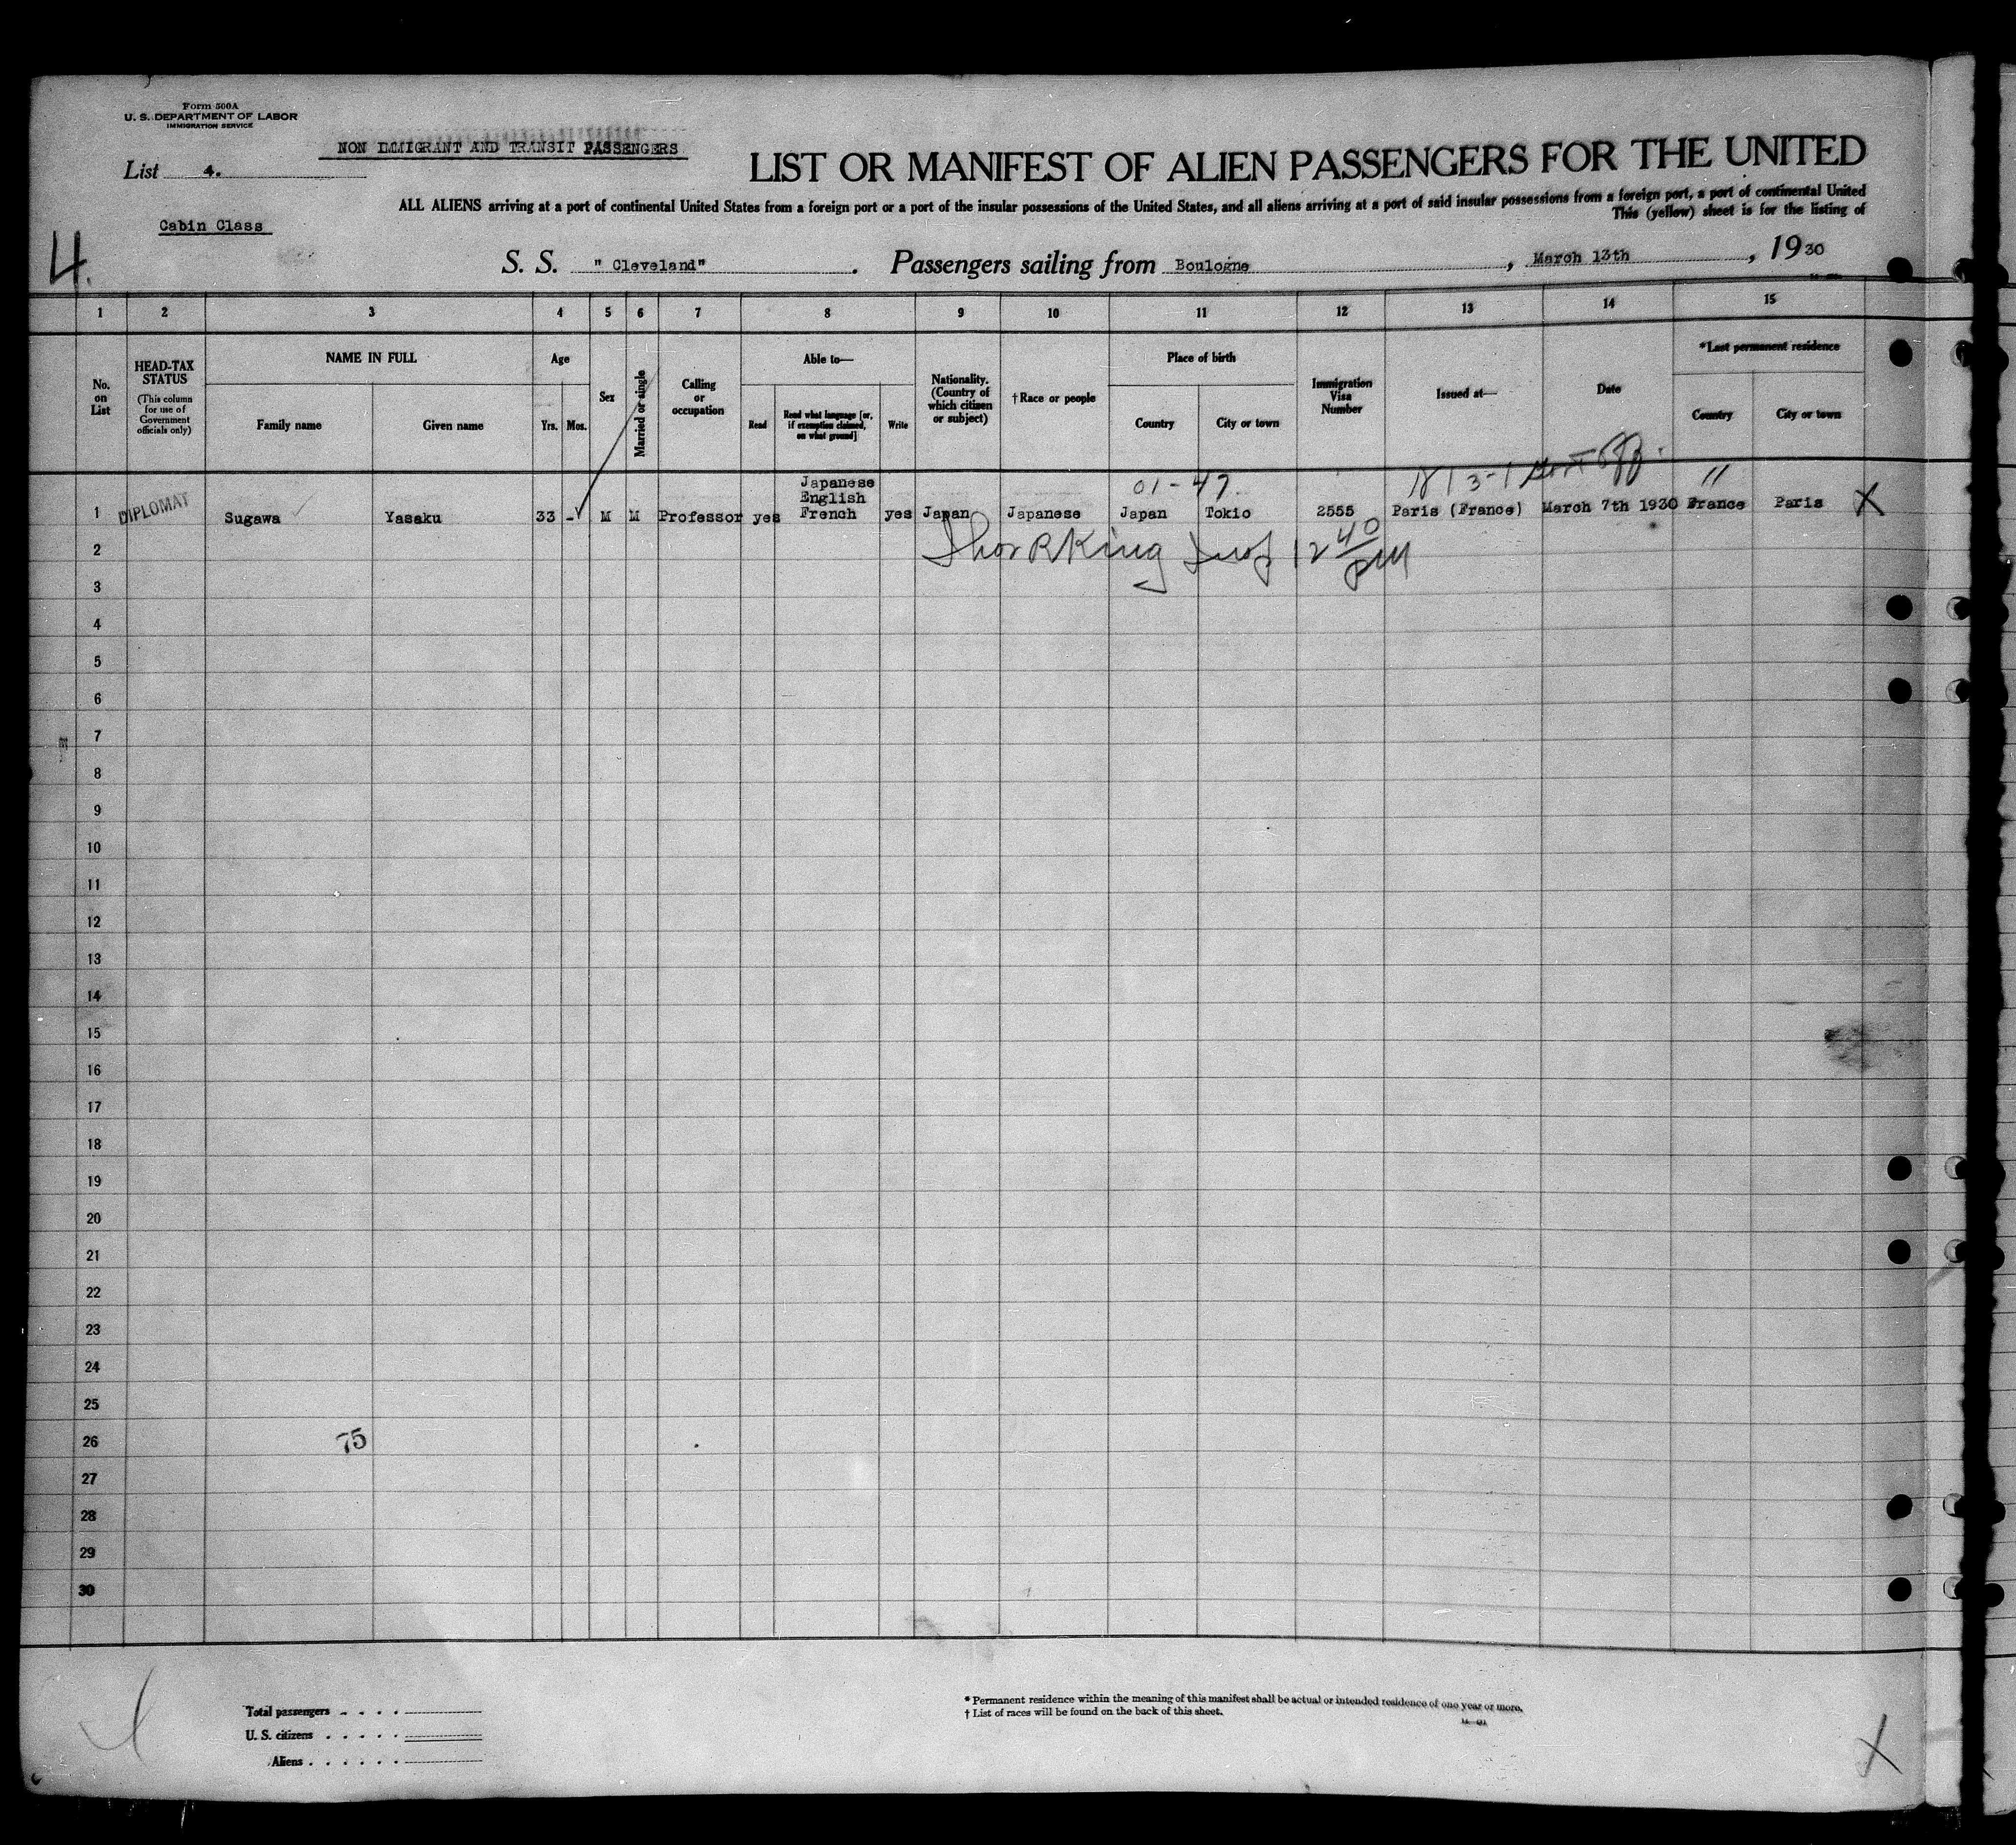 Form 500A
U. S. DEPARTMENT OF LABOR
IMMIGRATION SERVICE
NON IMMIGRANT AND TRANSIT PASSENGERS
List 4.
LIST OR MANIFEST OF ALIEN PASSENGERS FOR THE UNITED
ALL ALIENS arriving at a port of continental United States from a foreign port or a port of the insular possessions of the United States, and all aliens arriving at a port of said insular possessions from a foreign port, a port of continental United
This (yellow) sheet is for the listing of
Cabin Class
4.
S. S. " Cleveland" . Passengers sailing from Boulogne , March 13th , 1930
1 2 3 4 5 6 7 8 9 10 11 12 13 14 15
No. on List
HEAD-TAX STATUS
(This column for use of Government officials only)
NAME IN FULL
Family name Given name
Age
Yrs. Mos.
Sex
Married or single
Calling or occupation
Able to—
Read
Read what language [or, if exemption claimed, on what ground]
Write
Nationality. (Country of which citizen or subject)
†Race or people
Place of birth
Country City or town
Immigration Visa Number
Issued at—
Date
*Last permanent residence
Country City or town
01-47
1 DIPLOMAT Sugawa Yasaku 33 - M M Professor yes Japanese English French yes Japan Japanese Japan Tokio 2555 Paris (France) March 7th 1930 France Paris X
King 12 40 PM
2
3
4
5
6
7
8
9
10
11
12
13
14
15
16
17
18
19
20
21
22
23
24
25
26
75
27
28
29
30
Total passengers . . . .
U. S. citizens . . . . .
Aliens . . . . . .
* Permanent residence within the meaning of this manifest shall be actual or intended residence of one year or more.
† List of races will be found on the back of this sheet.
X